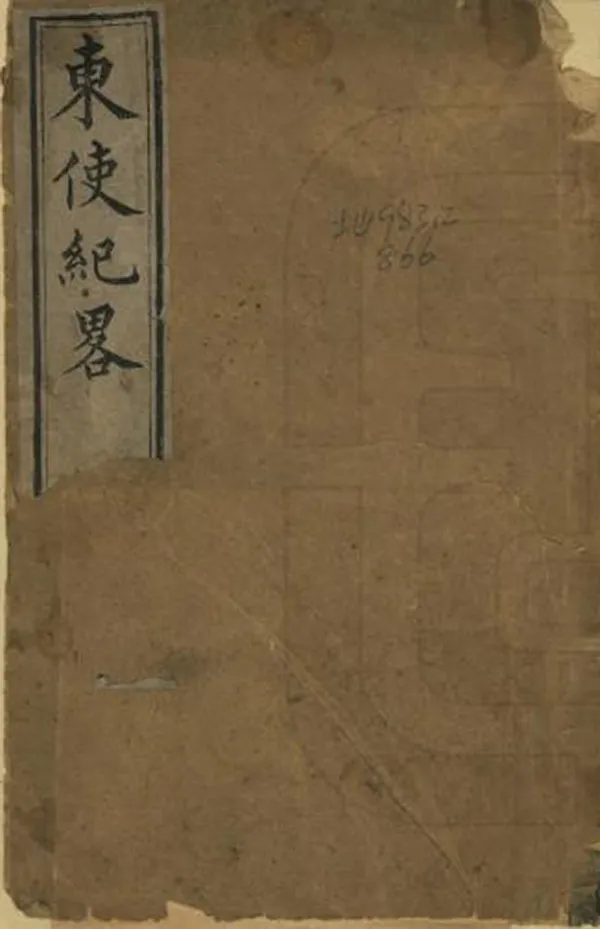 東使紀畧
983.2
866